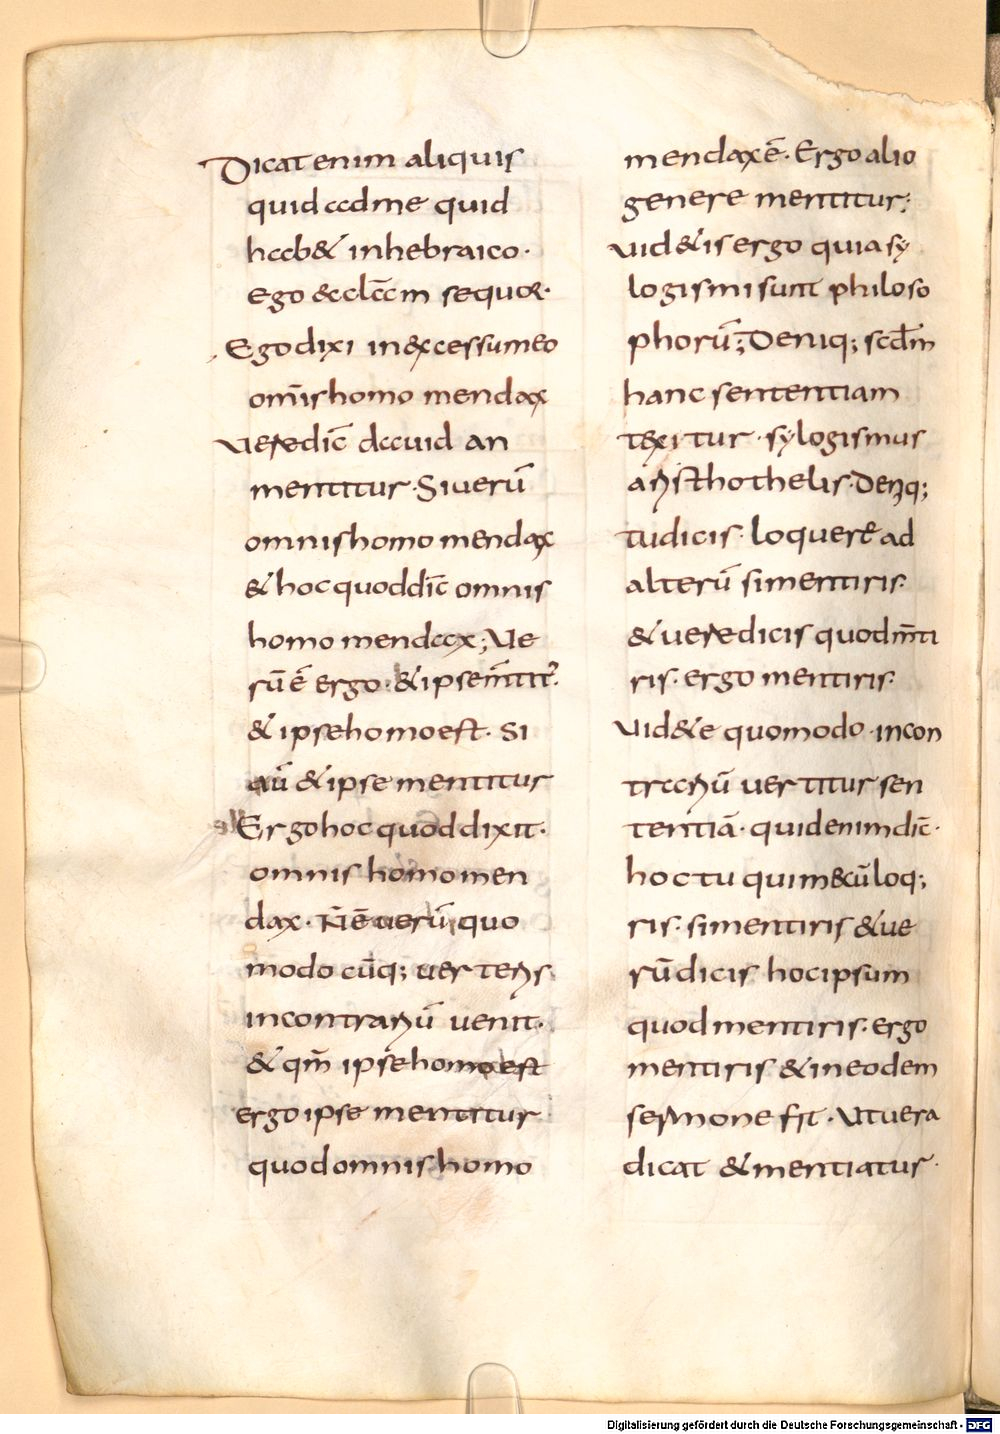 Dicat enim aliquis
quid ad me quid
hab& in hebraico·
ego & clēam sequor·
Ego dixi in excessu meo
om̄is homo mendax
Vere dic̄ dauid an
mentitur· Si uerū
omnis homo mendax
& hoc quod dic̄ omnis
homo mendax; Ve
rū ē ergo· & ipse m̄tit̉.
& ipse homo est· Si
aū & ipse mentitur
Ergo hoc quod dixit·
omnis homo men
dax· N̄ ē uerū quo
modo cūq; uertens
in contrariū uenit·
& qm̄ ipse homo est
ergo ipse mentitur
quod omnis homo
mendax ē· Ergo alio
genere mentitur;
Vid&is ergo quia sy
logismi sunt philoso
phorū; Deniq; scdm̄
hanc sententiam
texitur· sylogismus
aristhothelis· Deniq;
tu dicis· loquere ad
alterū si mentiris·
& uere dicis quod m̄ti
ris· ergo mentiris·
Vid&e quomodo· in con
trariū uertitur sen
tentiā· quid enim dic̄·
hoc tu qui mecū loq;
ris· si mentiris & ue
rū dicis hoc ipsum
quod mentiris· ergo
mentiris & in eodem
sermone fit· Vt uera
dicat & mentiatur·
Digitalisierung gefördert durch die Deutsche Forschungsgemeinschaft - DFG